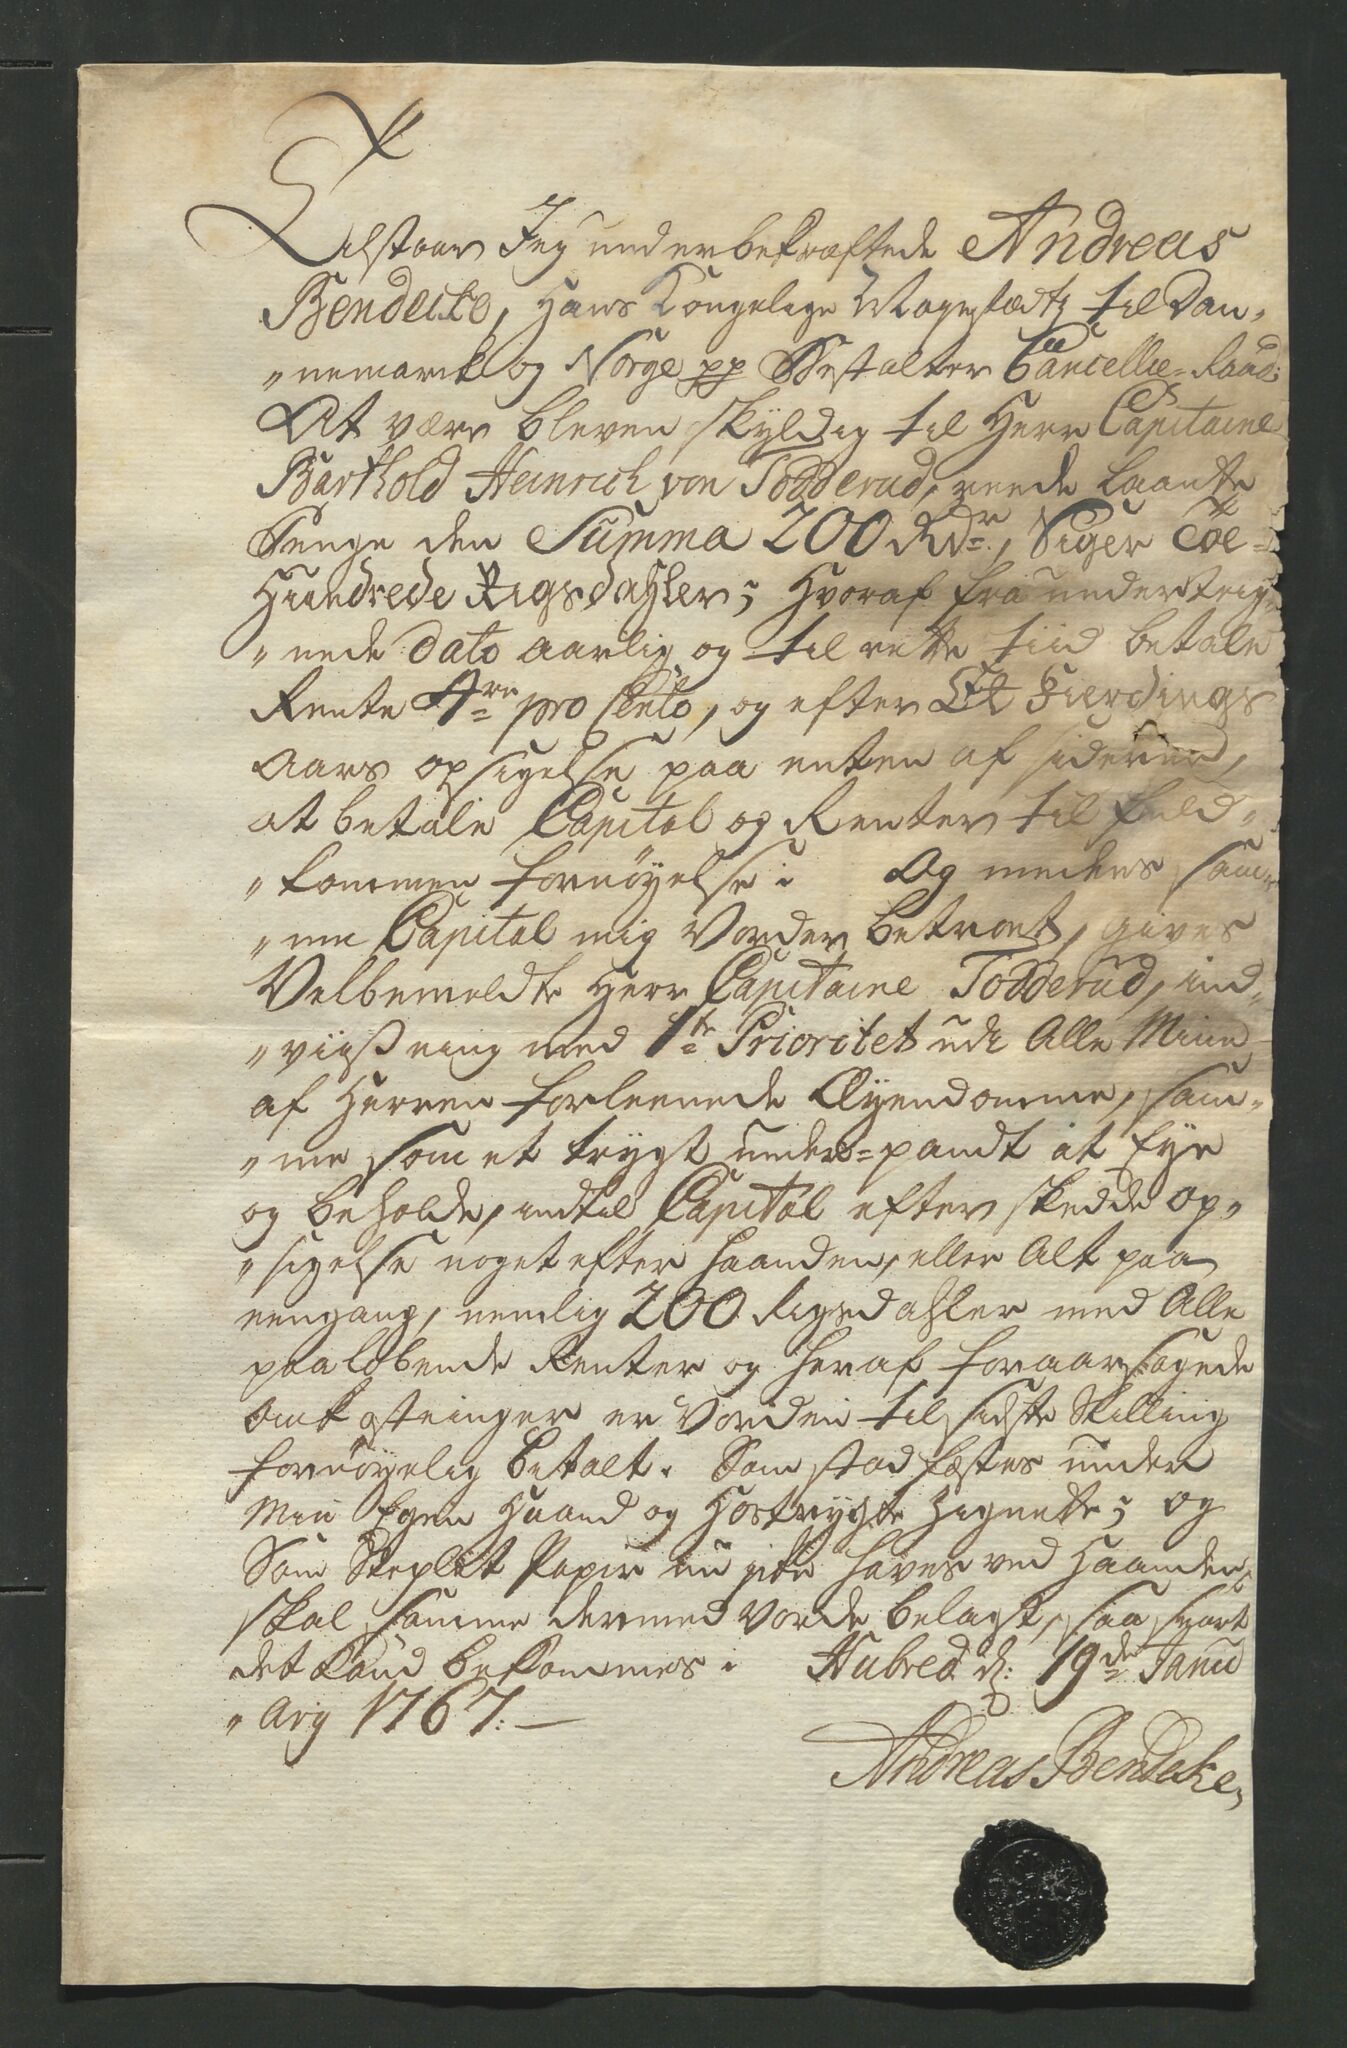 Tilstaar Jeg underbekræftede Andreas
Bendeke, Hans Kongelige Mayestædtz til Dan„
„nemarck og Norge pp Bestalter Cancellie-Raad:
At være bleven skyldig til Herr Capitaine
Barthold Heinrich von Todderud, reede Laante
Penge den Summa 200 Rdr, Siger Toe-
Hundrede Rigsdahler; Hvoraf fra underteig„
„nede dato aarlig og til rette tiid betale
Rente 4re pro Cento, og efter Et Fierdings
Aars opsigelse paa enten af siderne,
at betale Capital og Renter til fuld„
„kommen fornøyelse: Og medens sam„
„me Capital mig Vorder betroet, gives
Velbemeldte Herr Capitaine Todderud, ind„
„viisning med 1te Prioritet udi Alle Mine
af Herren forleenede Eyendomme, sam„
„me som et trygt under-pandt at Eye
og beholde, indtil Capital efter skedde op„
„sigelse noget efter haanden, eller Alt paa
eengang, nemlig 200 Rigsdahler med Alle
paaløbende Renter og heraf foraarsagede
Omkostninger er Vorden til sidste Skilling
fornøyelig betalt. Som stadfæstes under
Min Egen Haand og Hostrygte Zignette; og
Som Steplet Papir nu icke haves ved Haanden,
skal samme dermed Vorde belagt, saa snart
det kand bekommes. Hubred d: 19de Janu
„Ary 1767:—
Andreas Bendeke,